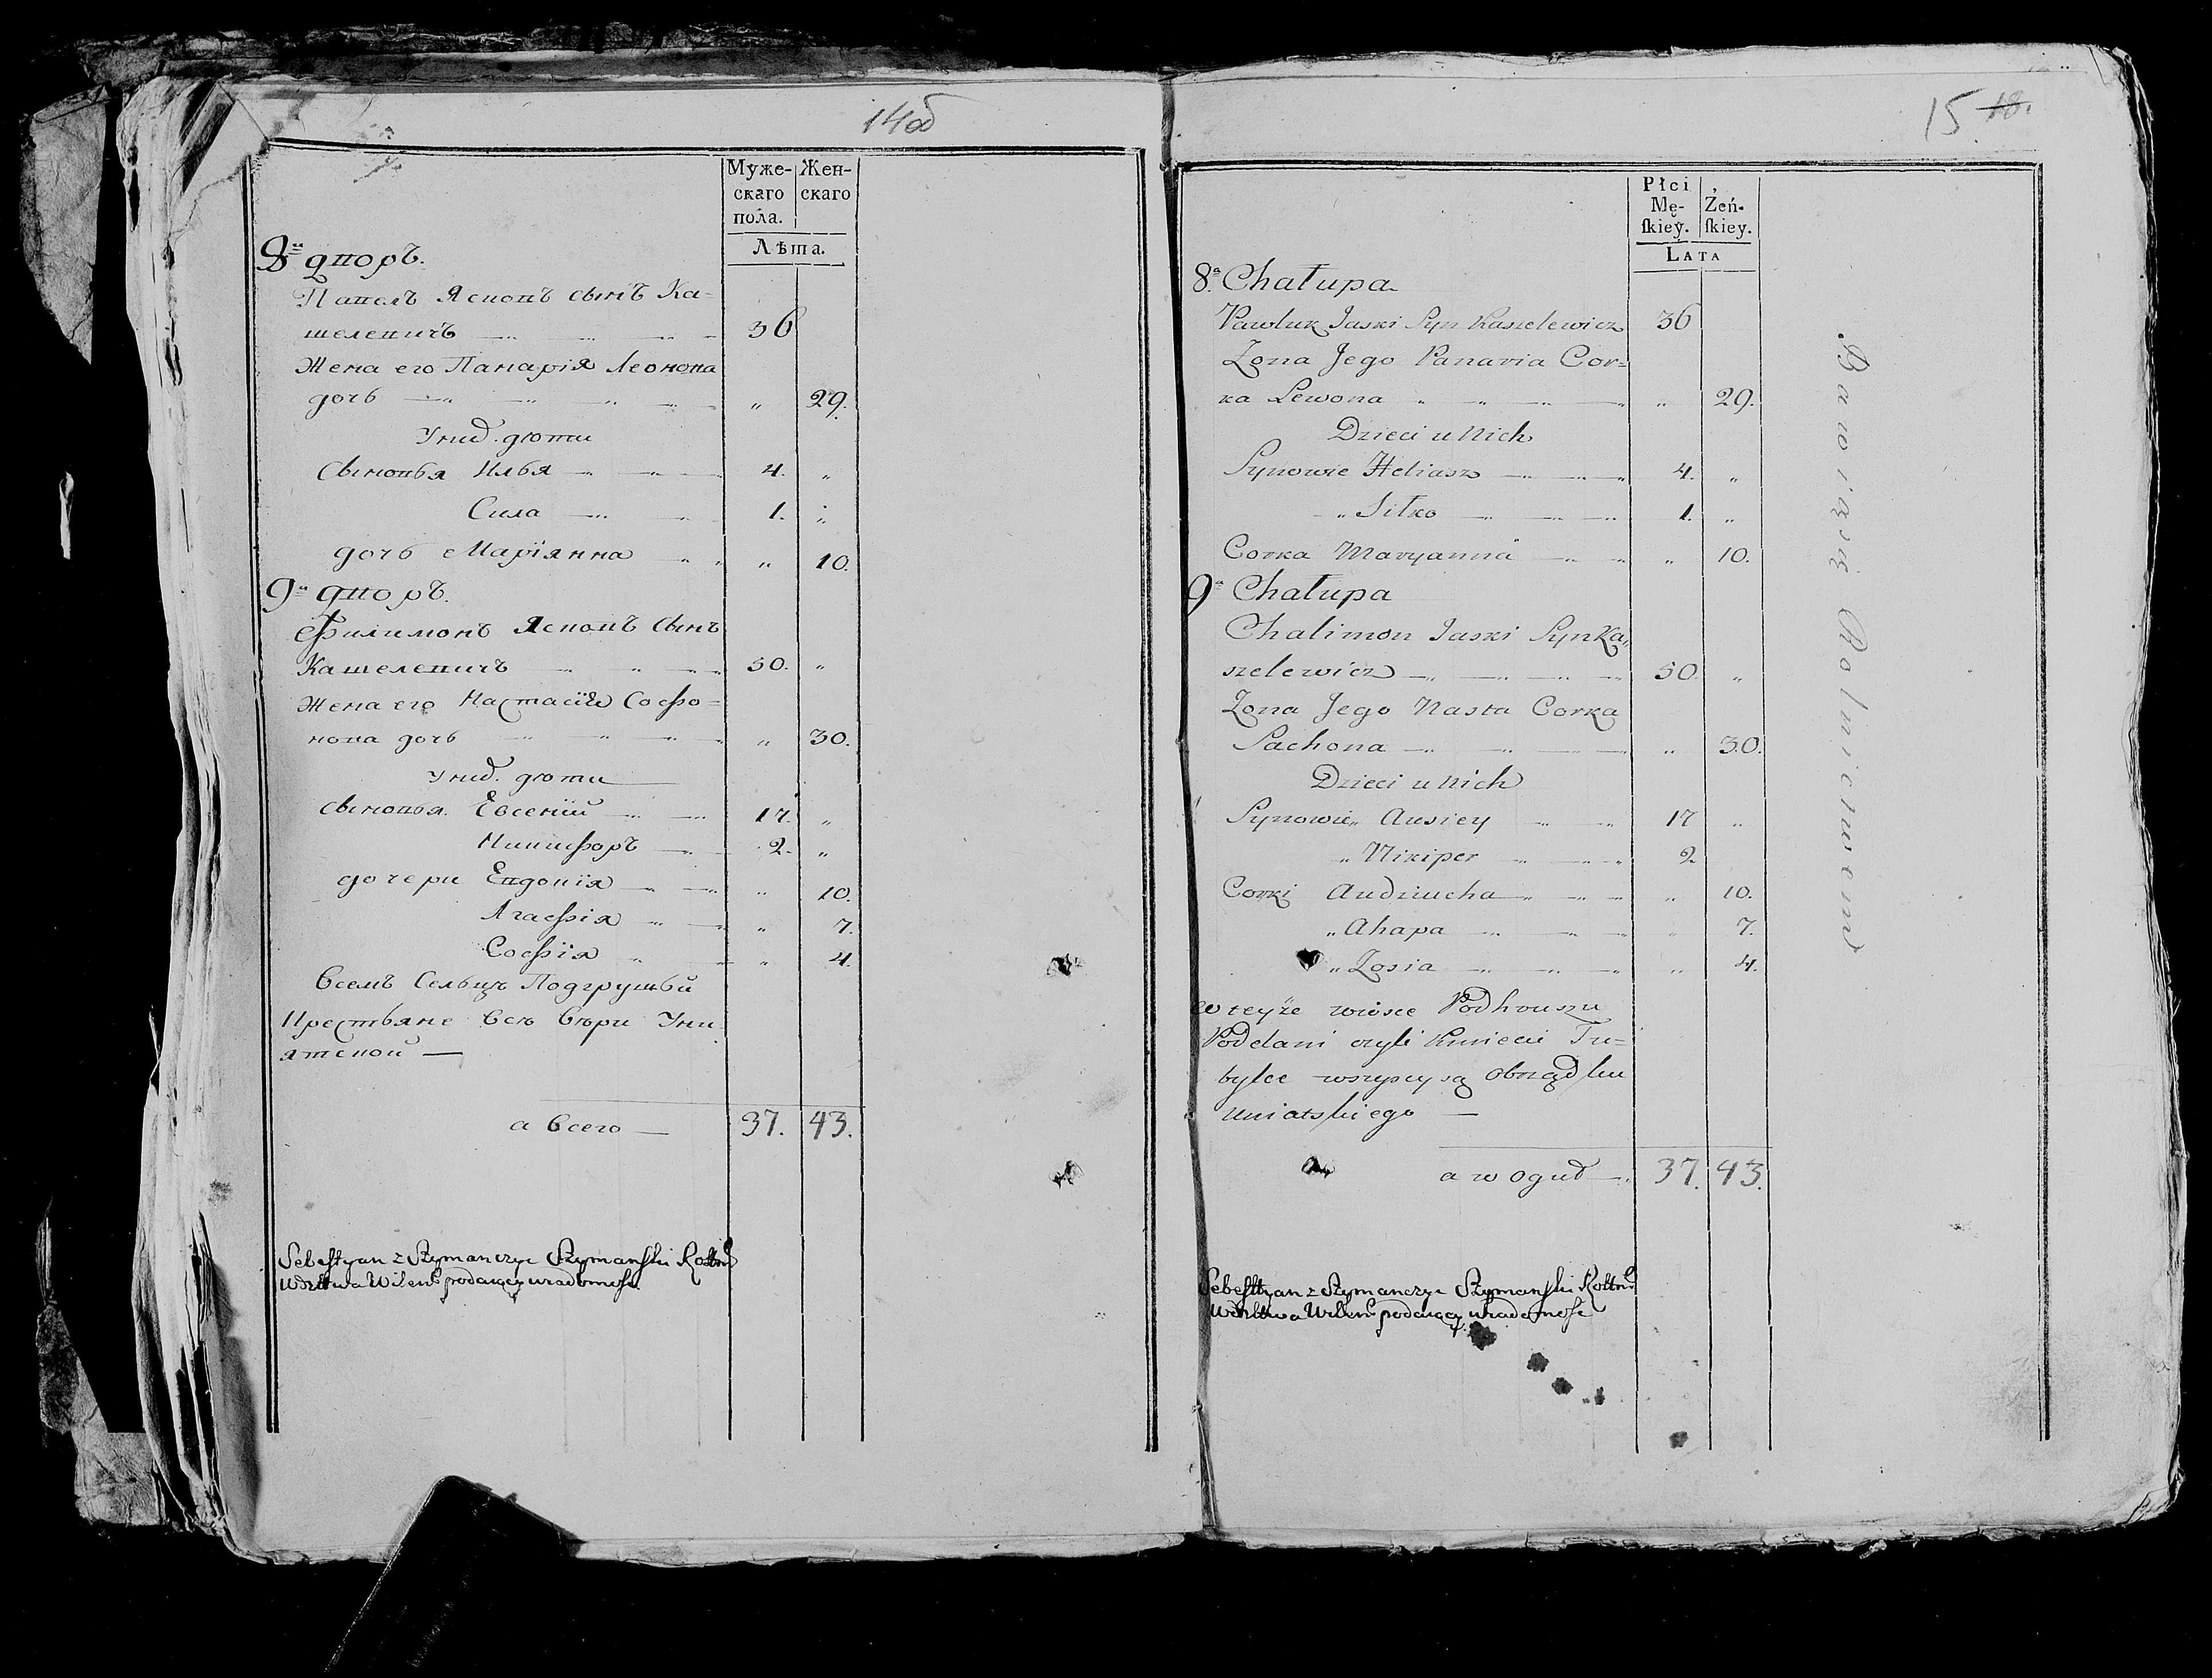 14об
Муже-
скаго
пола.
Жен-
скаго
Лѣта.
8й дворъ.
Павелъ Ясковъ сынъ Ка=
шелевичъ 36
Жена его Панарія Леонова
дочь „ 29.
У них дѣти
Сыновья Илья 4. „
Сила 1. „
дочь Маріянна „ 10.
9й дворъ.
Филимонъ Ясковъ Сынъ
Кашелевичъ 50. „
Жена его Настасія Софо=
нова дочь „ 30.
У них дѣти
Сыновья Евсений 17. „
Никифоръ 2. „
дочери Евдокія „ 10.
Агафія „ 7.
Софія „ 4.
Всемъ Сельцѣ Подгрушьи
Крестьяне Всѣ Вѣри Уни
ятской —
а Всего — 37. 43.
Sebestyan z Szymanczyc Szymanski Rottm
Wdztwa Wileń podaiący wiadomosc
15 18.
Płci
Mę-
skiey.
Żeń-
skiey.
LATA
8a Chałupa
Pawluk Jaski Syn Kaszelewicz 36
Zona Jego Panaria Cor=
ka Lewona „ 29.
Dzieci u Nich
Synowie Heliasz 4. „
„ Siłko 1. „
Corka Maryanna „ 10.
9a Chałupa
Chalimon Jaski Syn Ka„
szelewicz 50. „
Zona Jego Nasta Corka
Pachona „ 30.
Dzieci u Nich
Synowie „ Ausiey 17 „
„ Nikiper 2
Corki Audziucha „ 10.
„ Ahapa „ 7.
„ Zosia „ 4.
w teyże wiosce Podhruszu
Poddani czyli Kmiecie Tu=
bylce wszyscy są Obrządku
Uniatskiego —
a w oguł 37. 43.
Sebestyan z Szymanczyc Szymanski Rottm
Wdztwa Wileń podaiący wiadomosc
Bawią się Rolnictwem